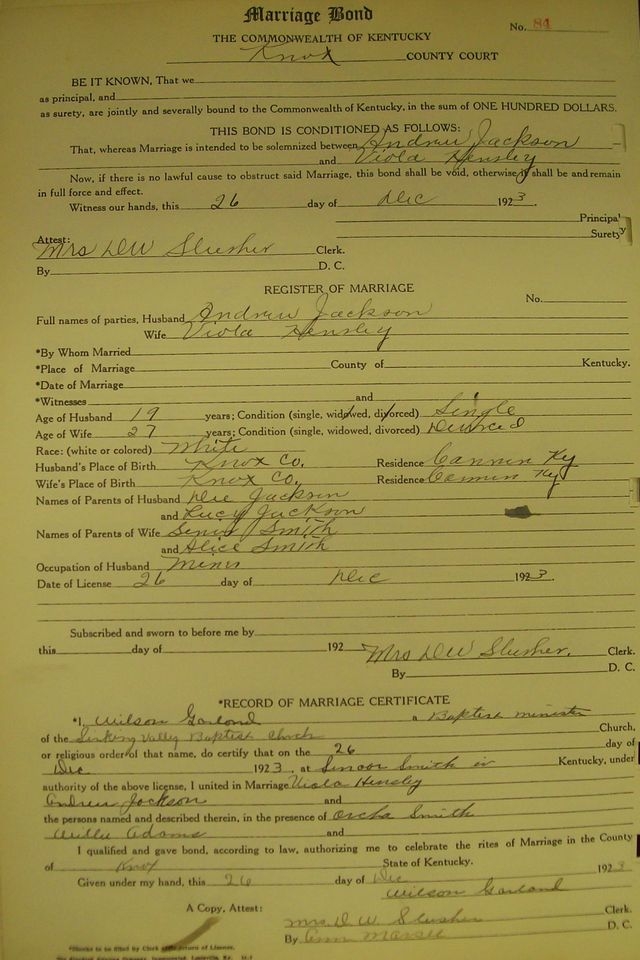 Marriage Bond
No. 84
THE COMMONWEALTH OF KENTUCKY
Knox COUNTY COURT
BE IT KNOWN, That we
as principal, and
as surety, are jointly and severally bound to the Commonwealth of Kentucky, in the sum of ONE HUNDRED DOLLARS.
THIS BOND IS CONDITIONED AS FOLLOWS:
That, whereas Marriage is intended to be solemnized between Andrew Jackson
and Viola Hensley
Now, if there is no lawful cause to obstruct said Marriage, this bond shall be void, otherwise it shall be and remain
in full force and effect.
Witness our hands, this 26 day of Dec 1923.
Principal
Surety
Attest:
Mrs D W Slusher Clerk.
By D. C.
REGISTER OF MARRIAGE
No.
Full names of parties, Husband Andrew Jackson
Wife Viola Hensley
*By Whom Married
*Place of Marriage County of Kentucky.
*Date of Marriage
*Witnesses and
Age of Husband 19 years; Condition (single, widowed, divorced) Single
Age of Wife 27 years; Condition (single, widowed, divorced) Divorced
Race: (white or colored) White
Husband's Place of Birth Knox Co. Residence Cannon Ky
Wife's Place of Birth Knox Co. Residence Cannon Ky
Names of Parents of Husband Jackson
and Lucy Jackson
Names of Parents of Wife Smith
and Alice Smith
Occupation of Husband Miner
Date of License 26 day of Dec 1923.
Subscribed and sworn to before me by
this day of 192
Mrs D W Slusher. Clerk.
By D. C.
*RECORD OF MARRIAGE CERTIFICATE
*I, Wilson Garland a Baptist minister
of the Sinking Valley Baptist Church Church,
or religious order of that name, do certify that on the 26 day of
Dec 1923, at Smith in Kentucky, under
authority of the above license, I united in Marriage Viola Hensley
Andrew Jackson and
the persons named and described therein, in the presence of Smith
Willie Adams and
I qualified and gave bond, according to law, authorizing me to celebrate the rites of Marriage in the County
of Knox State of Kentucky.
Given under my hand, this 26 day of Dec 1923
Wilson Garland
A Copy, Attest: Mrs D. W. Slusher Clerk.
By D. C.